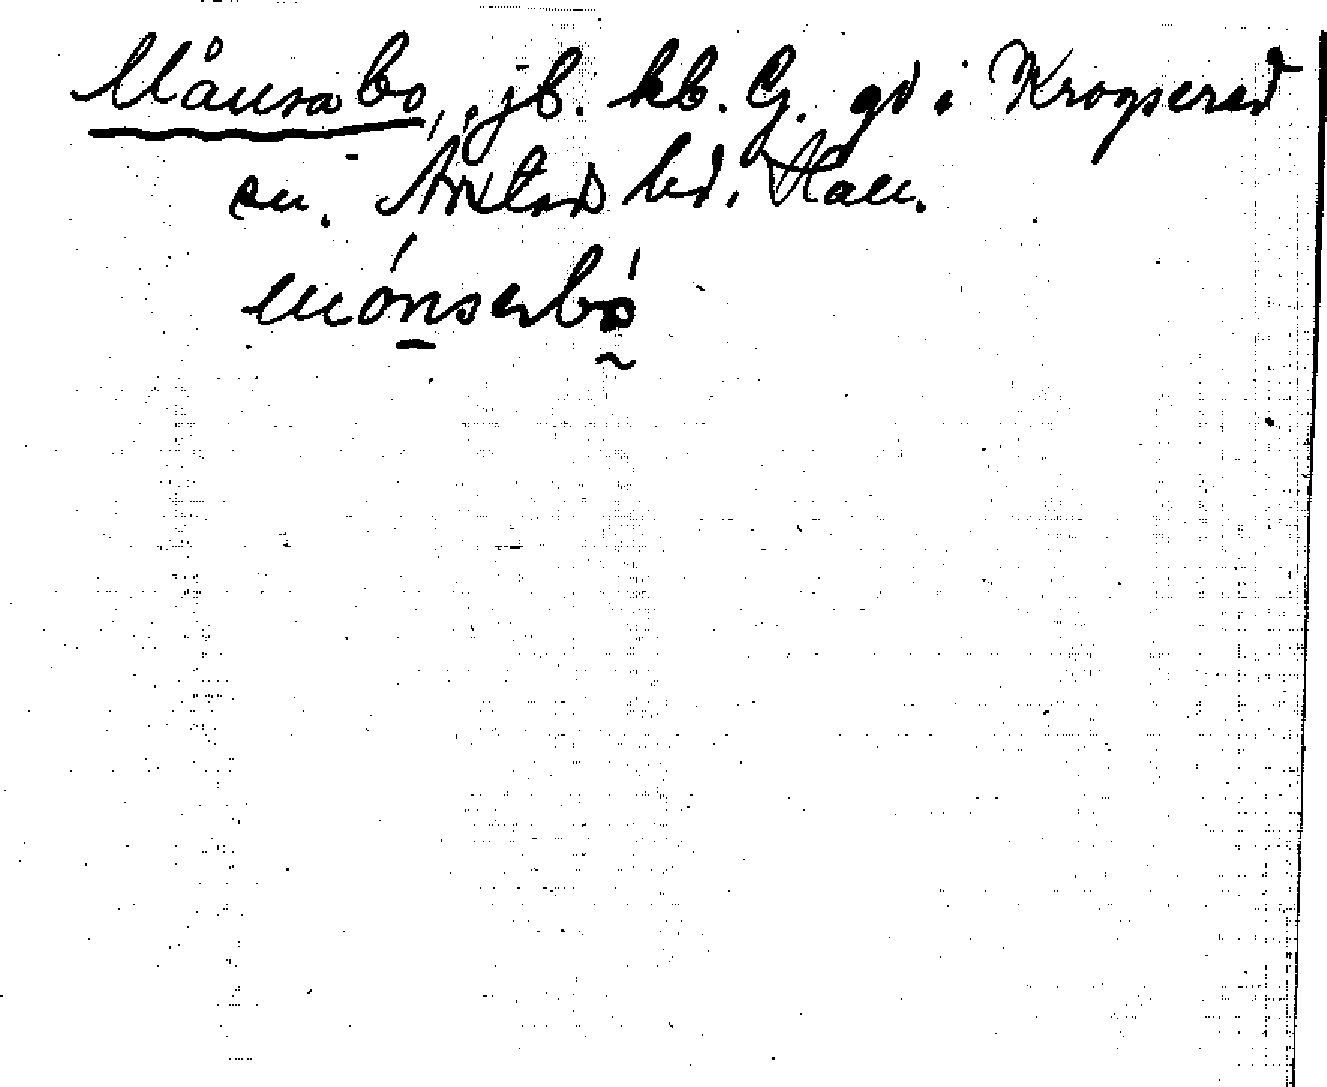 Månsabo, jb. kb. G. gd i Krogsered
sn. Årstad hd. Hall.
mónserbó